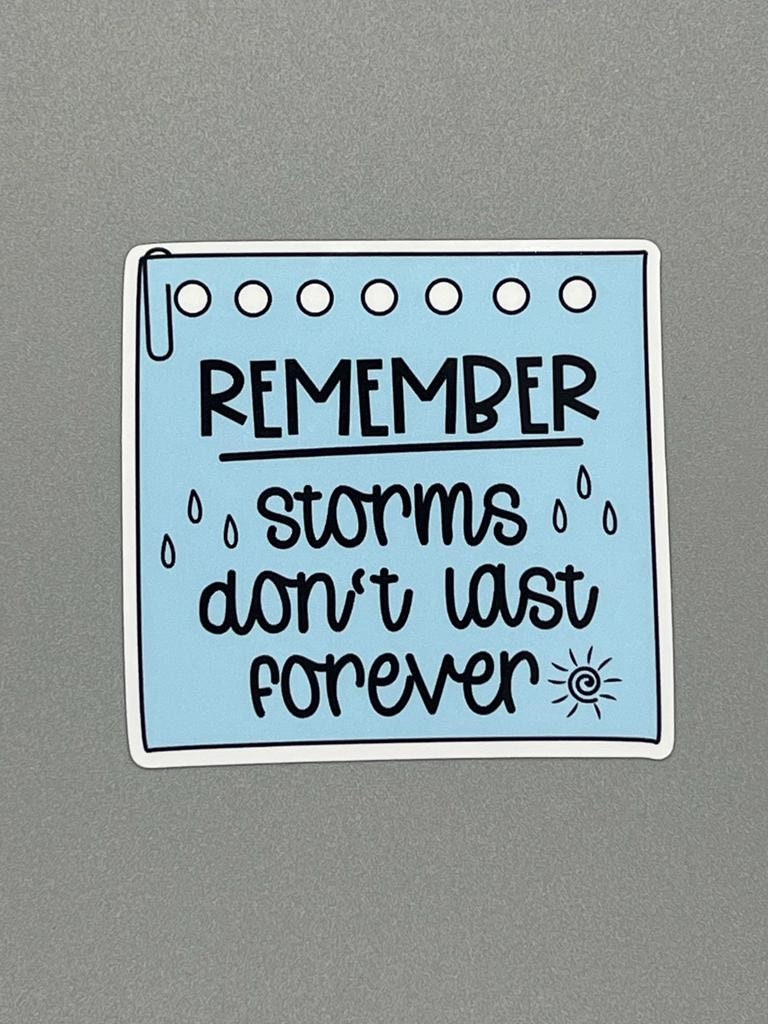 REMEMBER
storms
don't last
forever